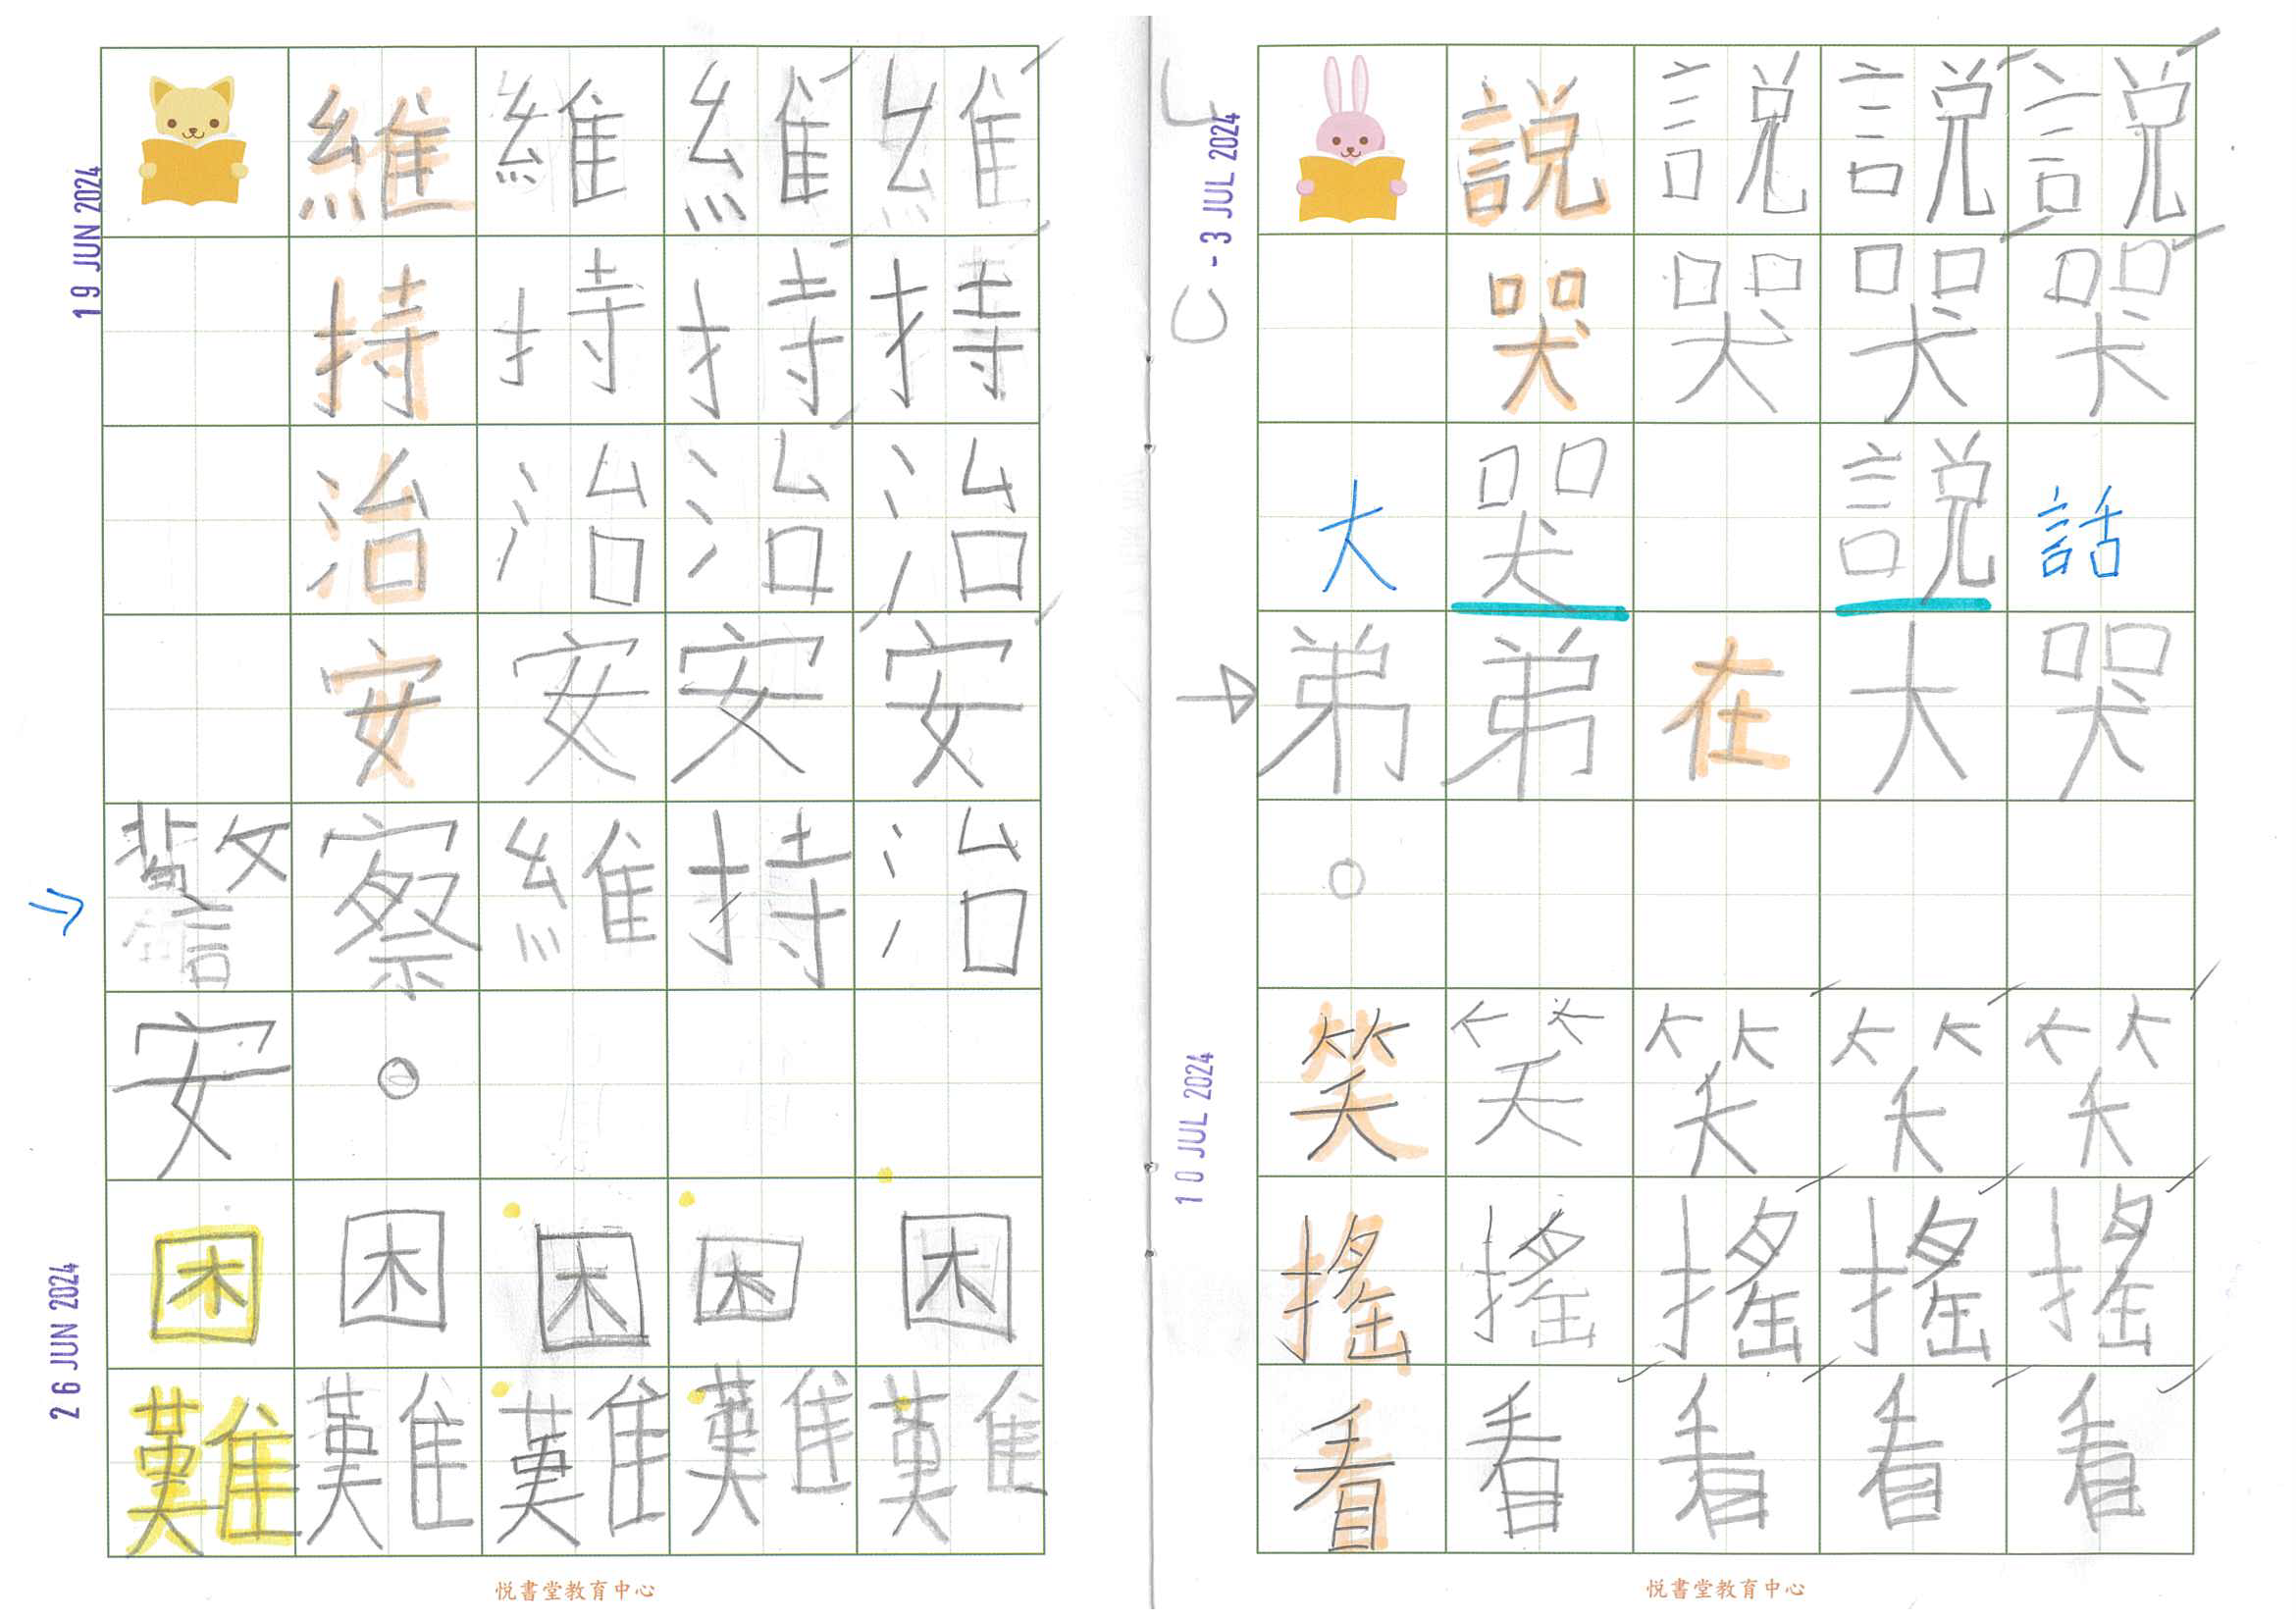 19 JUN 2024
維維維維
持持持持
治治治治
安安安安
警察維持治
安。
26 JUN 2024
困困困困困
難難難難難
悦書堂教育中心
- 3 JUL 2024
説説説説
哭哭哭哭
大哭 説話
弟弟在大哭
。
10 JUL 2024
笑笑笑笑笑
搖搖搖搖搖
看看看看看
悦書堂教育中心